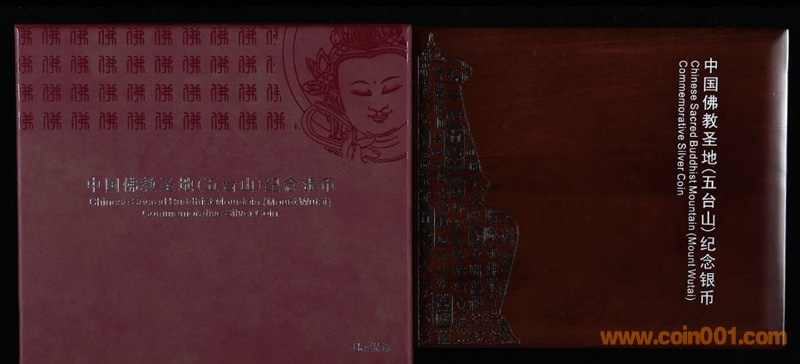 佛 佛 佛 佛 佛 佛 佛 佛 佛 佛
佛 佛 佛 佛 佛 佛 佛 佛 佛 佛
佛 佛 佛 佛 佛 佛 佛 佛 佛 佛
佛 佛 佛 佛 佛 佛 佛 佛 佛 佛
中国佛教圣地(五台山)纪念银币
Chinese Sacred Buddhist Mountain (Mount Wutai)
Commemorative Silver Coin
中国佛教圣地(五台山)纪念银币
Chinese Sacred Buddhist Mountain (Mount Wutai)
Commemorative Silver Coin
www.coin001.com